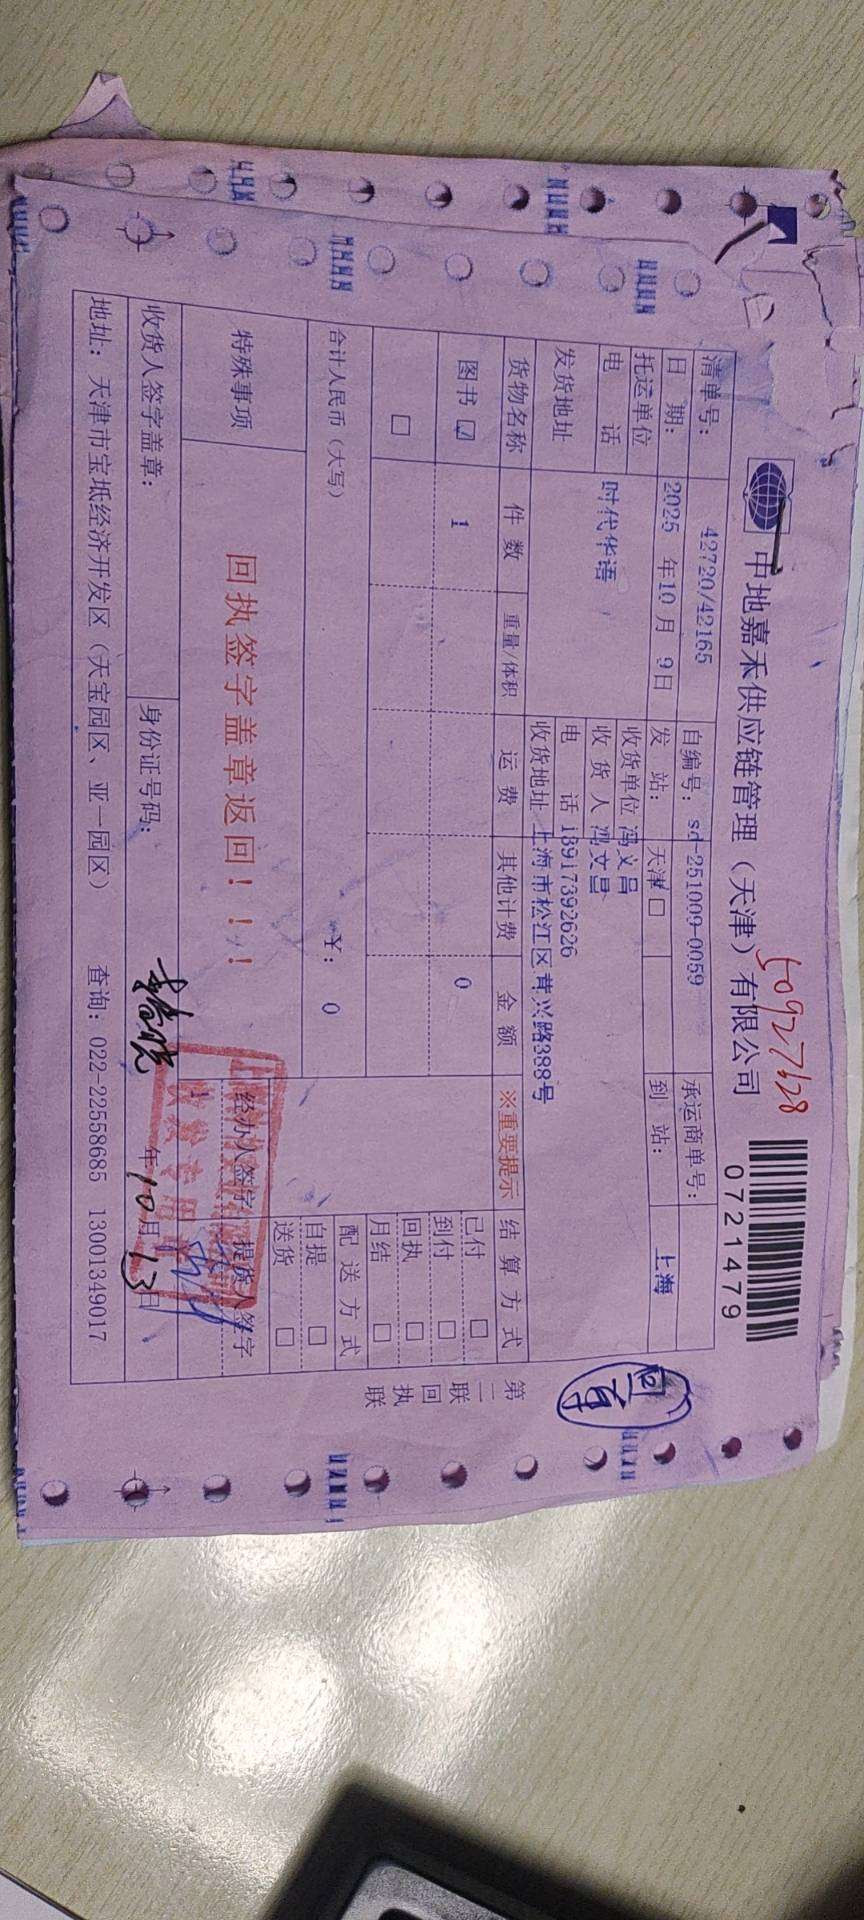 50927628
中地嘉禾供应链管理（天津）有限公司
0721479
清单号： 42720/42165 自编号：sd-251009-0059 承运商单号：
日 期： 2025 年10 月 9日 发 站： 天津 □ 到 站： 上海
托运单位 时代华语 收货单位 冯文昌
电 话 收 货 人 冯文昌
发货地址 电 话 18917392626
收货地址 上海市松江区茸兴路388号
货物名称 件 数 重量/体积 运 费 其他计费 金 额 ※重要提示 结 算 方 式
图书 ☑ 1 0 已付 □
到付 □
□ 回执 □
月结 □
合计人民币（大写） ￥： 0 配 送 方 式
自提 □
送货 □
特殊事项 回执签字盖章返回！！！ 经办人签字 提货人签字
收货人签字盖章： 身份证号码： 年 10 月 13 日
地址：天津市宝坻经济开发区（天宝园区、亚一园区） 查询：022-22558685 13001349017
第二联 回执联